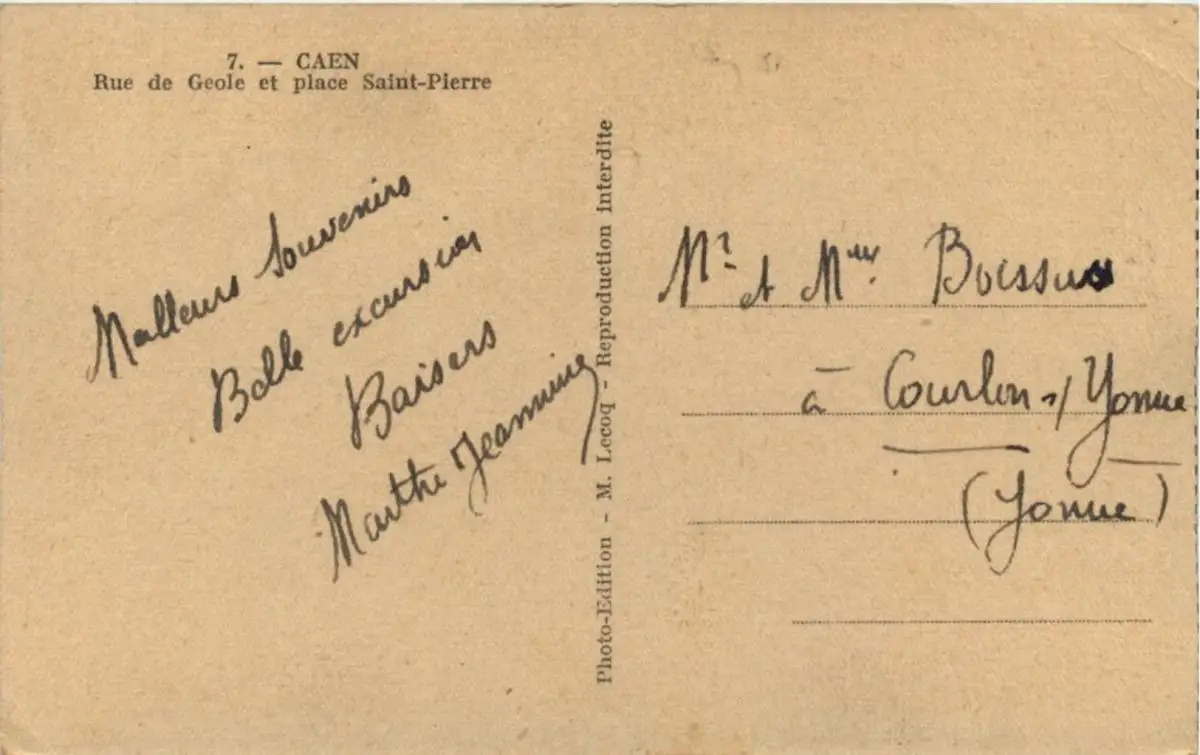 7. — CAEN
Rue de Geole et place Saint-Pierre
Meilleurs Souvenirs
Belle excursion
Baisers
Marthe Jeannine
Photo-Edition - M. Lecoq - Reproduction interdite
Mr et Mme Boissus
à Courlon s/ Yonne
(Yonne)